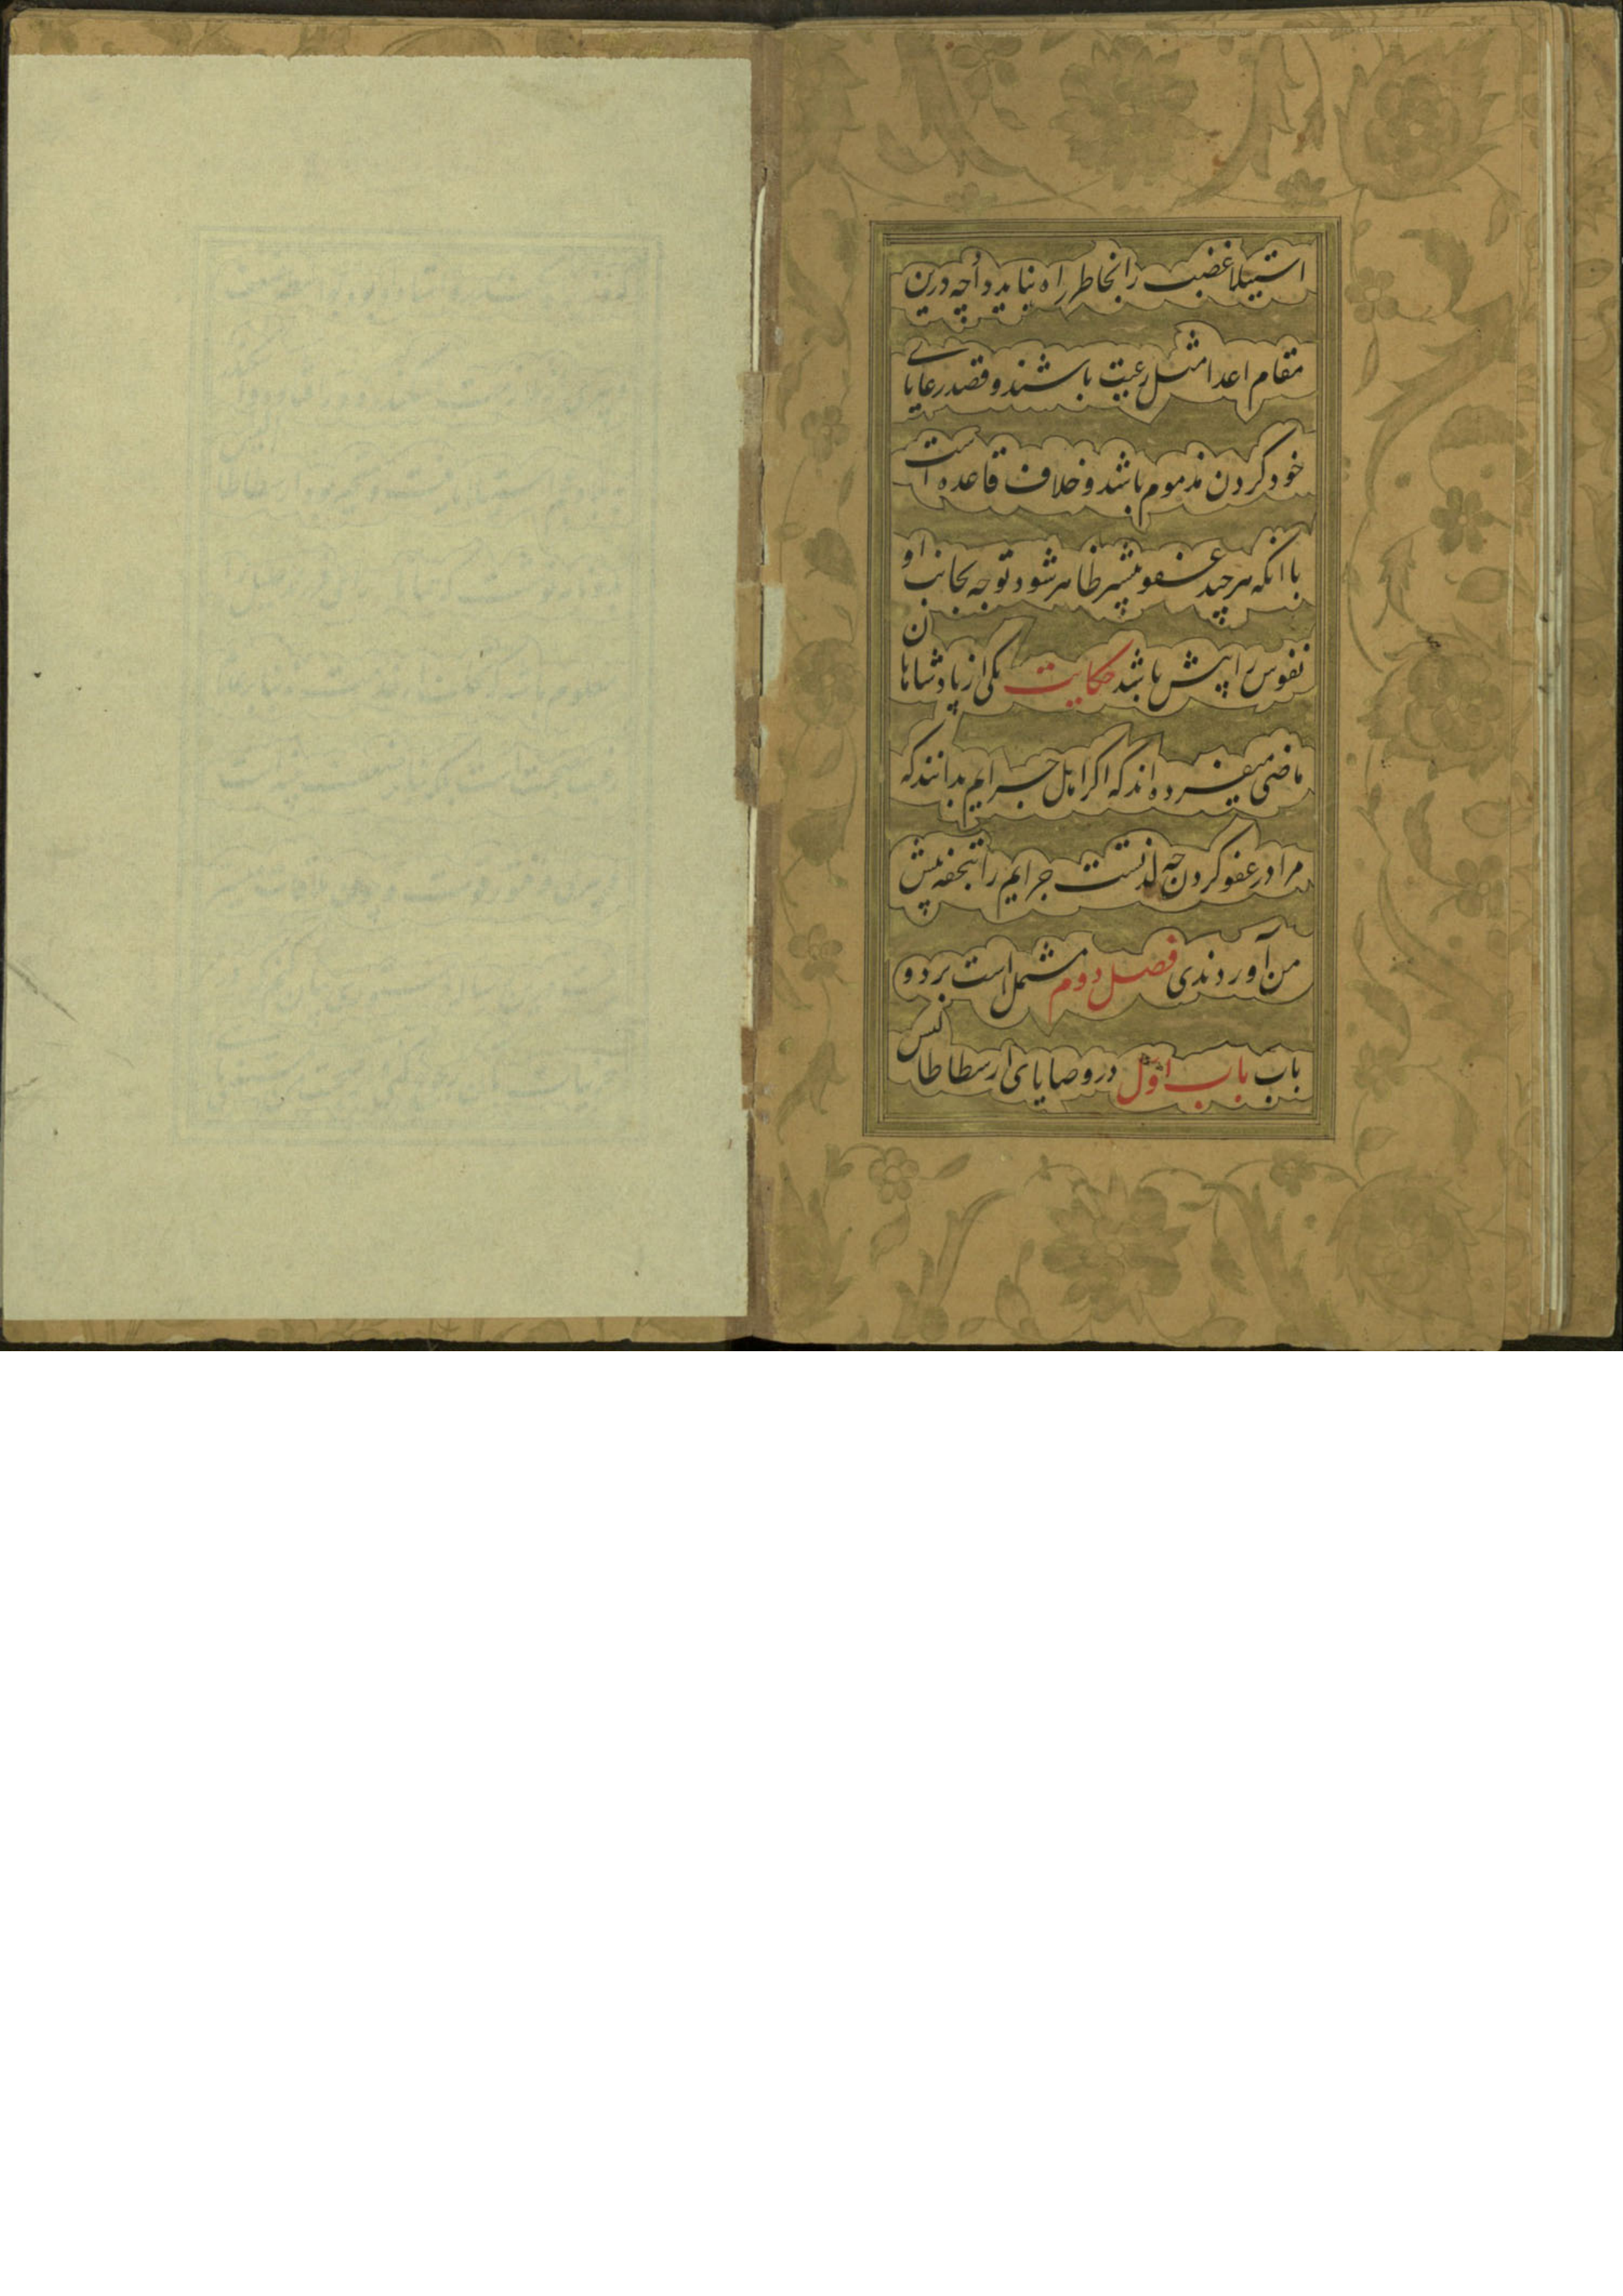 استیلا غضب را بخاطر راه نباید داد چه درین
مقام اعدا مثل رعیت باشند و قصد رعایای
خود کردن مذموم باشد و خلاف قاعده است
با انکه هر چند عفو بیشتر ظاهر شود توجه بجانب او
نفوس را بیش باشد حکایت یکی از پادشاهان
ماضی میفرموده اند که اکر اهل جرایم بدانند که
مرا در عفو کردن چه لذتست جرایم را بتحفه پیش
من آوردندی فصل دوم مشتمل است بر دو
باب باب اول در وصایای ارسطاطالیس